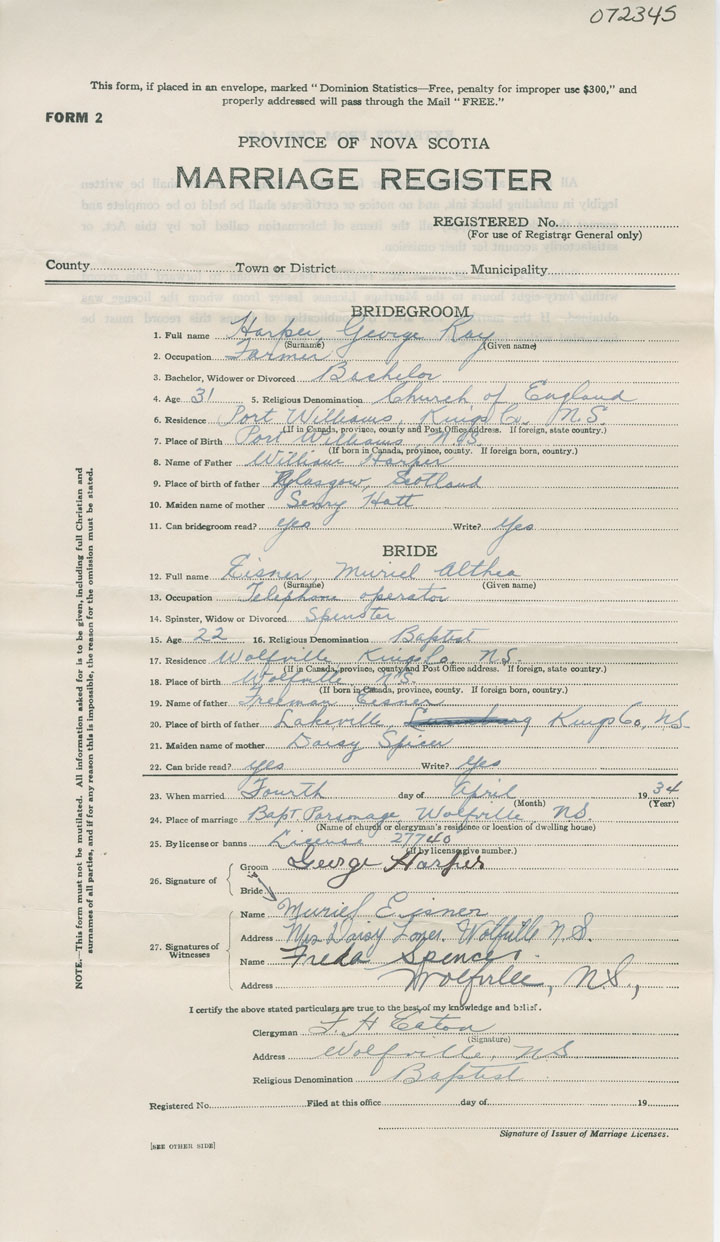 072345
This form, if placed in an envelope, marked "Dominion Statistics—Free, penalty for improper use $300," and
properly addressed will pass through the Mail "FREE."
FORM 2
PROVINCE OF NOVA SCOTIA
MARRIAGE REGISTER
REGISTERED No.
(For use of Registrar General only)
County Town or District Municipality
BRIDEGROOM
1. Full name Harper, George Ray
(Surname) (Given name)
2. Occupation Farmer
3. Bachelor, Widower or Divorced Bachelor
4. Age 31 5. Religious Denomination Church of England
6. Residence Port Williams, Kings Co. N.S.
(If in Canada, province, county and Post Office Address. If foreign, state country.)
7. Place of Birth Port Williams, N.S.
(If born in Canada, province, county. If foreign born, country.)
8. Name of Father William Harper
9. Place of birth of father Glasgow, Scotland
10. Maiden name of mother Hatt
11. Can bridegroom read? yes Write? yes
BRIDE
12. Full name Eisner, Muriel Althea
(Surname) (Given name)
13. Occupation Telephone operator
14. Spinster, Widow or Divorced Spinster
15. Age 22 16. Religious Denomination Baptist
17. Residence Wolfville Kings Co., N.S.
(If in Canada, province, county and Post Office address. If foreign, state country.)
18. Place of birth Wolfville N.S.
(If born in Canada, province, county. If foreign born, country.)
19. Name of father Freeman Eisner
20. Place of birth of father Lakeville, Kings Co, N.S.
21. Maiden name of mother Daisy Spicer
22. Can bride read? yes Write? yes
23. When married Fourth day of April 1934
(Month) (Year)
24. Place of marriage Bapt. Parsonage, Wolfville, N.S.
(Name of church or clergyman's residence or location of dwelling house)
25. By license or banns License 27740
(If by license give number.)
26. Signature of
Groom George Harper
Bride
27. Signatures of
Witnesses
Name Muriel Eisner
Address Mrs Daisy Wolfville N.S.
Name Freda Spencer
Address Wolfville, N.S.,
I certify the above stated particulars are true to the best of my knowledge and belief.
Clergyman F. H. Eaton
(Signature)
Address Wolfville, N.S.
Religious Denomination Baptist
Registered No. Filed at this office day of 19
Signature of Issuer of Marriage Licenses.
[SEE OTHER SIDE]
NOTE.—This form must not be mutilated. All information asked for is to be given, including full Christian and
surnames of all parties, and if for any reason this is impossible, the reason for the omission must be stated.